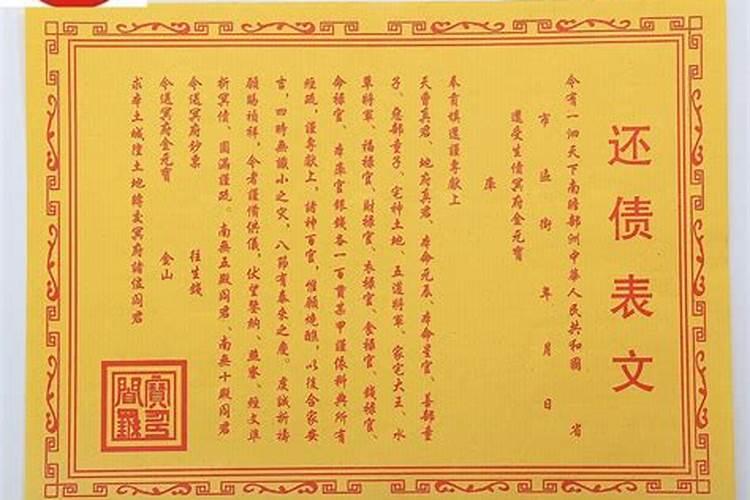 还债表文
今有一泗天下南瞻部洲中華人民共和國 省
市 區 街 年 月 日
還受生債冥府金元寶
庫
奉育填還謹專献上
天曹真君、地府真君、本命元辰、本命星官、善部童
子、惡部童子、宅神土地、五道將軍、家宅大王、水
草將軍、福禄官、財禄官、衣禄官、食禄官、錢禄官、
命禄官、本庫官銀錢各一百貫某甲謹依科典所有
經疏，謹專献上，諸神百官，惟願燒醮，以後合家安
吉，四時無纖小之灾，八節有泰來之慶。虔誠祈禱
願賜禎祥，令者謹備供儀，伏望鑒納、照察、經文準
折冥債、圆滿謹疏。南無五殿阎君、南無十殿阎君
令送冥府鈔票 往生錢
令送冥府金元寶 金山
求本土城隍土地轉交冥府諸位阎君